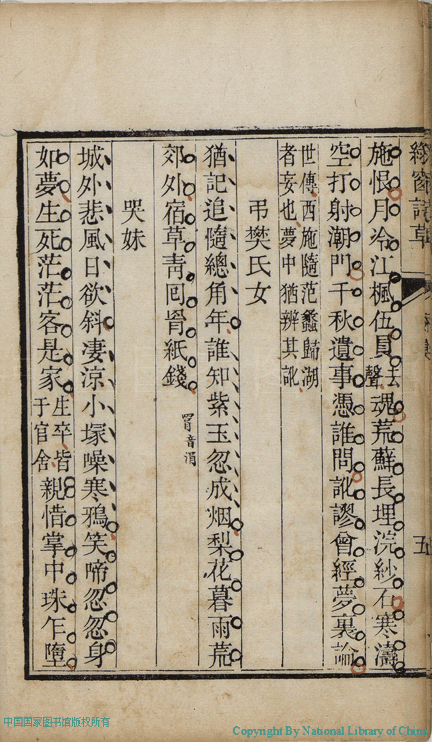 綠窗詩草
五
施恨月冷江楓伍員去聲魂荒蘚長埋浣紗石寒濤
空打射潮門千秋遺事憑誰問訛謬曾經夢裏論
世傳西施隨范蠡歸湖
者妄也夢中猶辨其訛
弔樊氏女
猶記追隨總角年誰知紫玉忽成烟梨花暮雨荒
郊外宿草靑囘罥紙錢罥音涓
哭妹
城外悲風日欲斜淒涼小塚噪寒鴉笑啼忽忽身
如夢生死茫茫客是家生卒皆于官舍親惜掌中珠乍墮
中国国家图书馆版权所有
Copyright By National Library of China